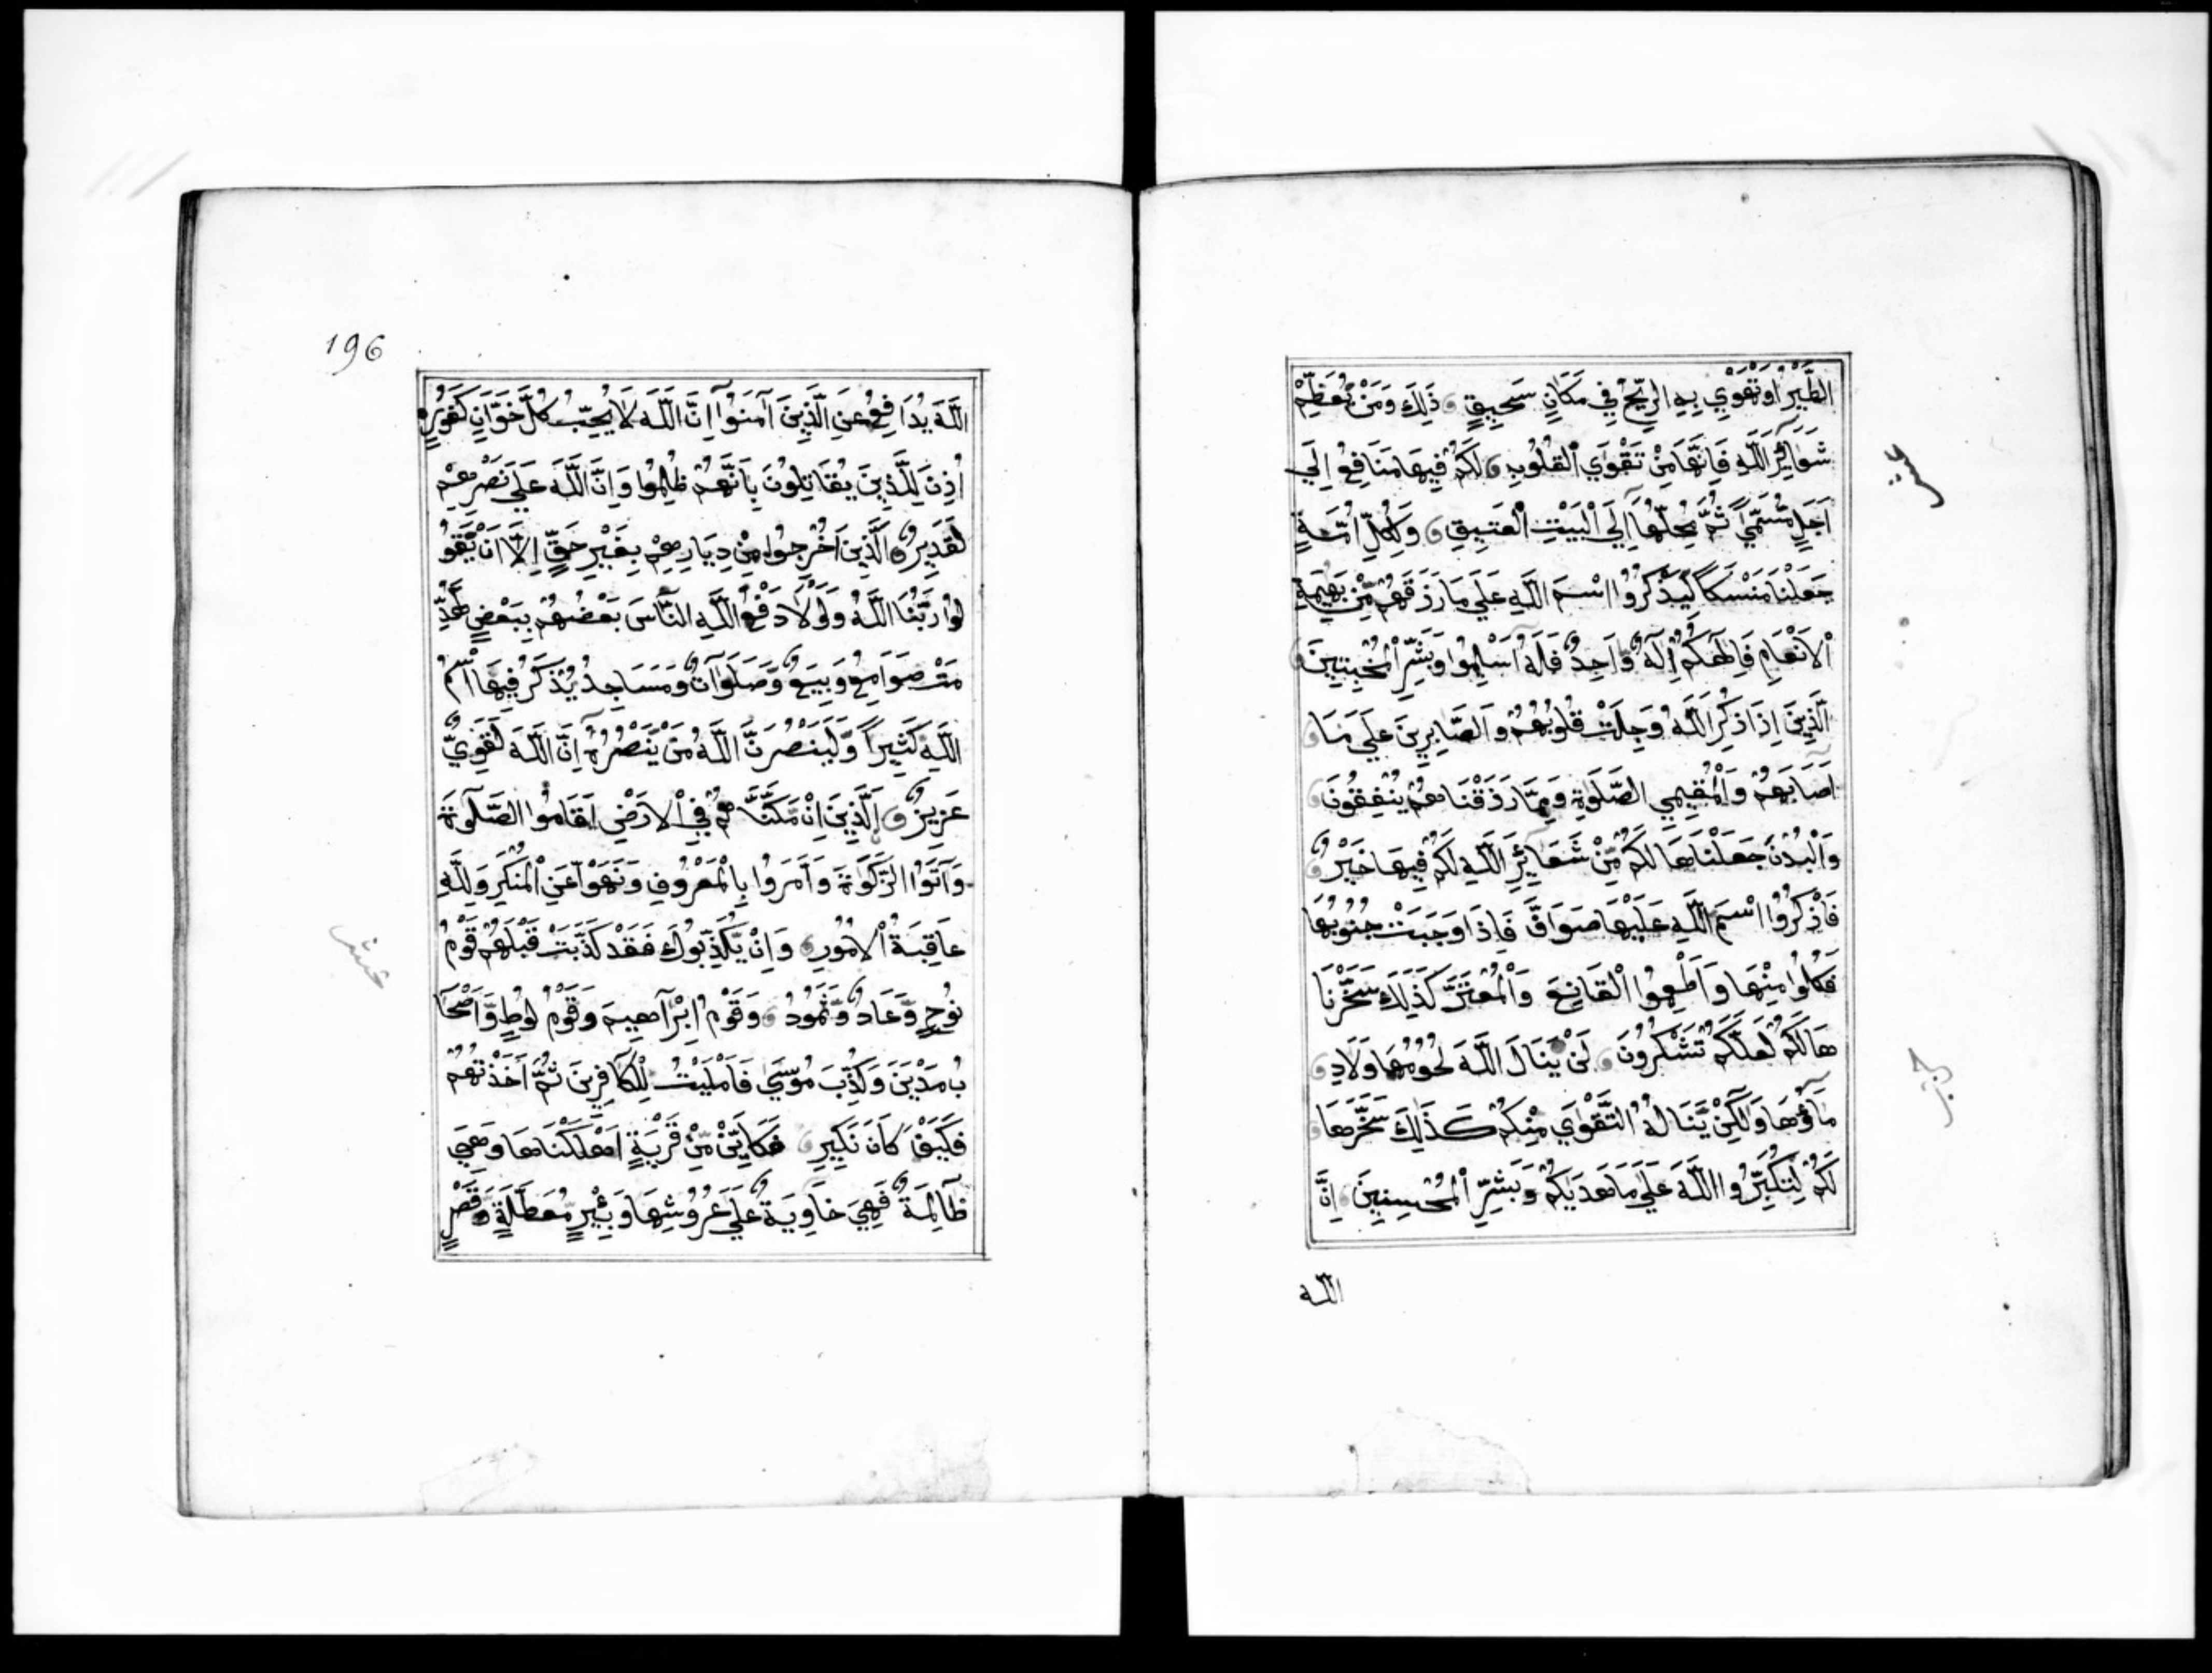 الطَّيْرُ اَوْ تَهْوِي بِهِ الرِّيحُ فِي مَكَانٍ سَحِيقٍ ذَلِكَ وَمَنْ يُعَظِّمْ
شَعَائِرَ اللَّهِ فَاِنَّهَا مِنْ تَقْوَي الْقُلُوبِ لَكُمْ فِيهَا مَنَافِعُ اِلَي
اَجَلٍ مُسَمًّي ثُمَّ مَحِلُّهَا اِلَي الْبَيْتِ الْعَتِيقِ وَلِكُلِّ اُمَّةٍ
جَعَلْنَا مَنْسَكًا لِيَذْكُرُوا اسْمَ اللَّهِ عَلَي مَا رَزَقَهُمْ مِّنْ بَهِيمَةِ
الْاَنْعَامِ فَاِلَهُكُمْ اِلَهٌ وَّاحِدٌ فَلَهُ اَسْلِمُوا وَبَشِّرِ الْمُخْبِتِينَ
الَّذِينَ اِذَا ذُكِرَ اللَّهُ وَجِلَتْ قُلُوبُهُمْ وَالصَّابِرِينَ عَلَي مَا
اَصَابَهُمْ وَالْمُقِيمِي الصَّلَوةِ وَمِمَّا رَزَقْنَاهُمْ يُنْفِقُونَ
وَالْبُدْنَ جَعَلْنَاهَا لَكُمْ مِّنْ شَعَائِرِ اللَّهِ لَكُمْ فِيهَا خَيْرٌ
فَاذْكُرُوا اسْمَ اللَّهِ عَلَيْهَا صَوَافَّ فَاِذَا وَجَبَتْ جُنُوبُهَا
فَكُلُوا مِنْهَا وَاَطْعِمُوا الْقَانِعَ وَالْمُعْتَرَّ كَذَلِكَ سَخَّرْنَا
هَا لَكُمْ لَعَلَّكُمْ تَشْكُرُونَ لَنْ يَّنَالَ اللَّهَ لُحُومُهَا وَلَا دِ
مَاؤُهَا وَلَكِنْ يَّنَالُهُ التَّقْوَي مِنْكُمْ كَذَلِكَ سَخَّرَهَا
لَكُمْ لِتُكَبِّرُوا اللَّهَ عَلَي مَا هَدَيكُمْ وَبَشِّرِ الْمُحْسِنِينَ اِنَّ
اللّه
196
اللَّهَ يُدَافِعُ عَنِ الَّذِينَ آمَنُوا اِنَّ اللَّهَ لَا يُحِبُّ كُلَّ خَوَّانٍ كَفُورٍ
اُذِنَ لِلَّذِينَ يُقَاتِلُونَ بِاَنَّهُمْ ظُلِمُوا وَاِنَّ اللَّهَ عَلَي نَصْرِهِمْ
لَقَدِيرٌ الَّذِينَ اُخْرِجُوا مِنْ دِيَارِهِمْ بِغَيْرِ حَقٍّ اِلَّا اَنْ يَّقُو
لُوا رَبُّنَا اللَّهُ وَلَوْلَا دَفْعُ اللَّهِ النَّاسَ بَعْضَهُمْ بِبَعْضٍ لَهُدِّ
مَتْ صَوَامِعُ وَبِيَعٌ وَّصَلَوَاتٌ وَّمَسَاجِدُ يُذْكَرُ فِيهَا اسْمُ
اللَّهِ كَثِيراً وَلَيَنْصُرَنَّ اللَّهُ مَنْ يَّنْصُرُهُ اِنَّ اللَّهَ لَقَوِيٌّ
عَزِيزٌ اَلَّذِينَ اِنْ مَكَّنَّاهُمْ فِي الْاَرْضِ اَقَامُوا الصَّلَوةَ
وَآتَوُا الزَّكَوةَ وَاَمَرُوا بِالْمَعْرُوفِ وَنَهَوْا عَنِ الْمُنْكَرِ وَلِلَّهِ
عَاقِبَةُ الْاُمُورِ وَاِنْ يُّكَذِّبُوكَ فَقَدْ كَذَّبَتْ قَبْلَهُمْ قَوْمُ
نُوحٍ وَّعَادٌ وَّثَمُودُ وَقَوْمُ اِبْرَاهِيمَ وَقَوْمُ لُوطٍ وَّاَصْحَا
بُ مَدْيَنَ وَكُذِّبَ مُوسَي فَاَمْلَيْتُ لِلْكَافِرِينَ ثُمَّ اَخَذْتُهُمْ
فَكَيْفَ كَانَ نَكِيرِ فَكَاَيِّنْ مِّنْ قَرْيَةٍ اَهْلَكْنَاهَا وَهِيَ
ظَالِمَةٌ فَهِيَ خَاوِيَةٌ عَلَي عُرُوشِهَا وَبِئْرٍ مُّعَطَّلَةٍ وَّقَصْرٍ